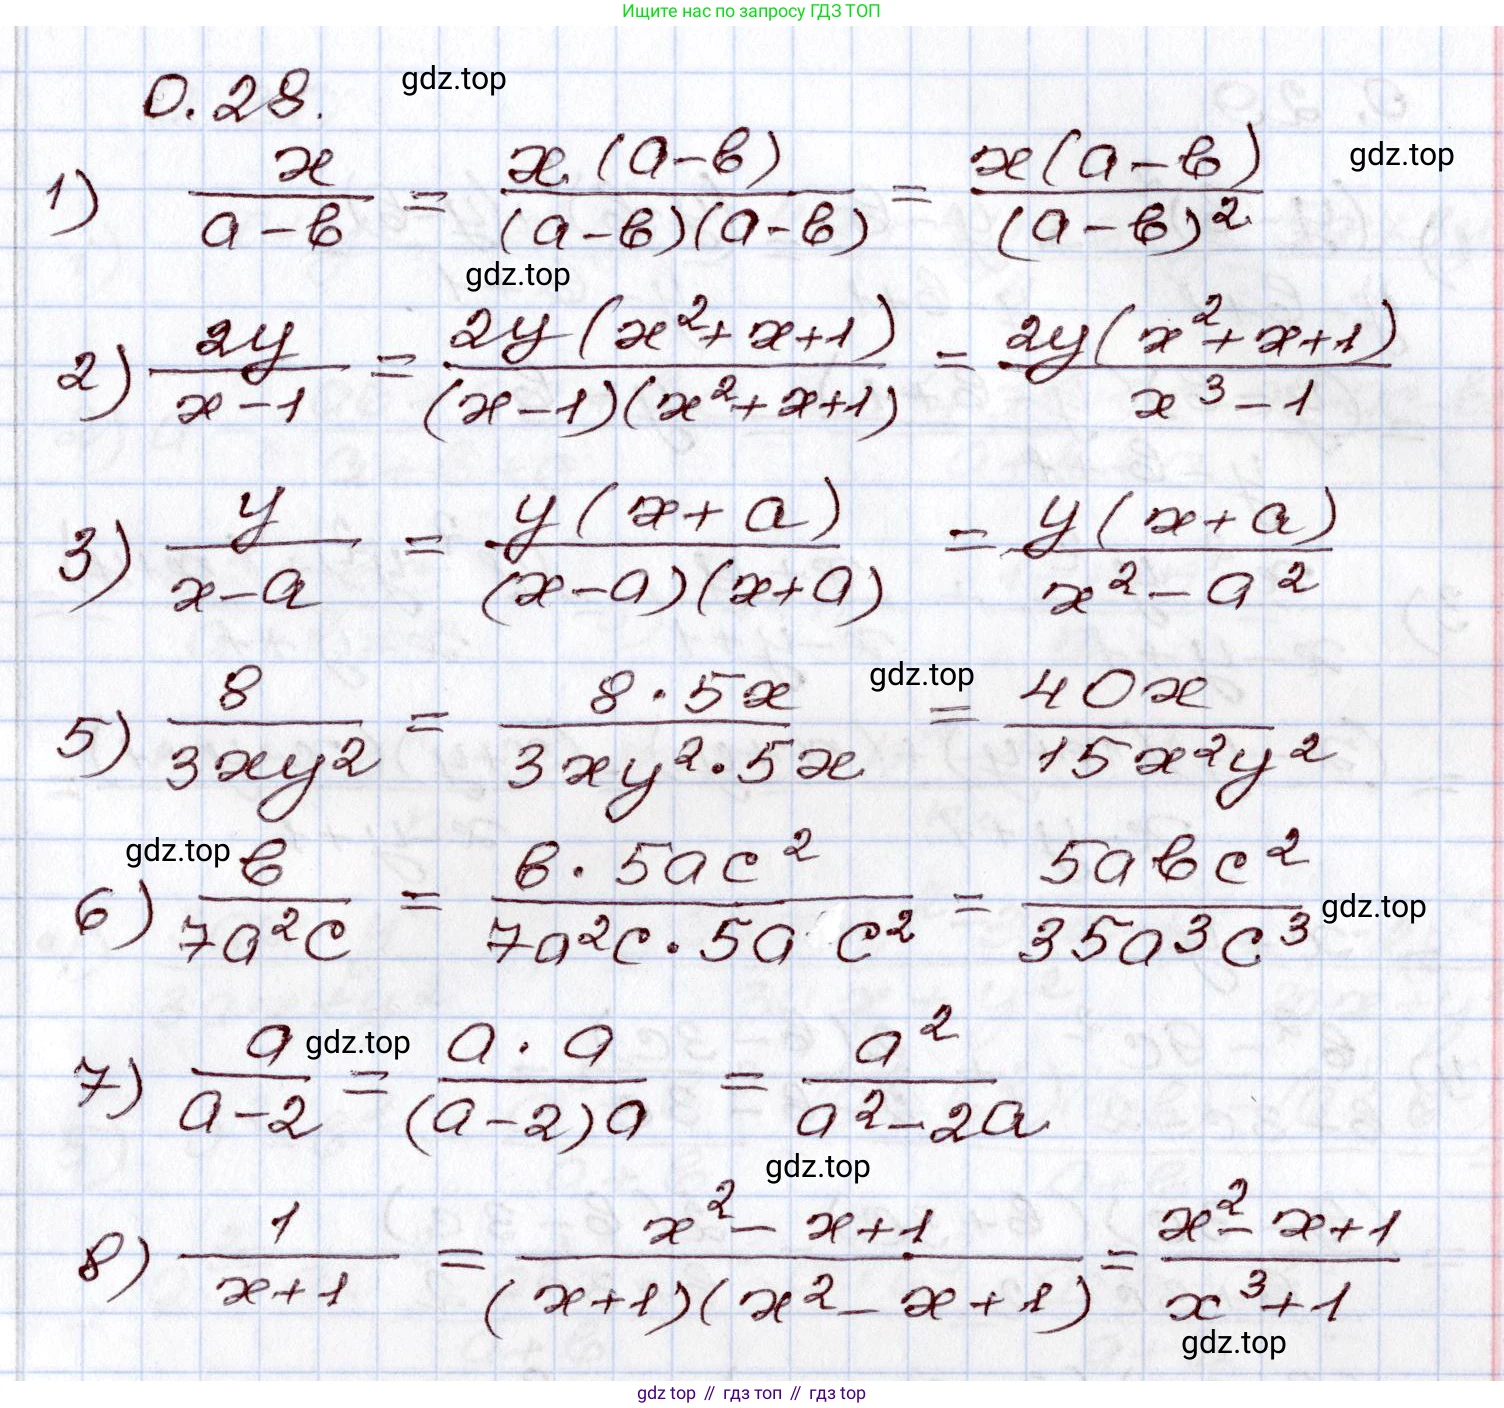 Ищите нас по запросу ГДЗ ТОП
0.28. gdz.top
1) x/(a-в) = x·(a-в)/((a-в)(a-в)) = x(a-в)/(a-в)² gdz.top
gdz.top
2) 2y/(x-1) = 2y(x²+x+1)/((x-1)(x²+x+1)) = 2y(x²+x+1)/(x³-1)
3) y/(x-a) = y(x+a)/((x-a)(x+a)) = y(x+a)/(x²-a²)
gdz.top
5) 8/(3xy²) = 8·5x/(3xy²·5x) = 40x/(15x²y²)
gdz.top
6) в/(7a²c) = в·5ac²/(7a²c·5ac²) = 5aвc²/(35a³c³) gdz.top
7) a/(a-2) = a·a/((a-2)a) = a²/(a²-2a) gdz.top
gdz.top
8) 1/(x+1) = (x²-x+1)/((x+1)(x²-x+1)) = (x²-x+1)/(x³+1)
gdz.top
gdz top // гдз топ // гдз top